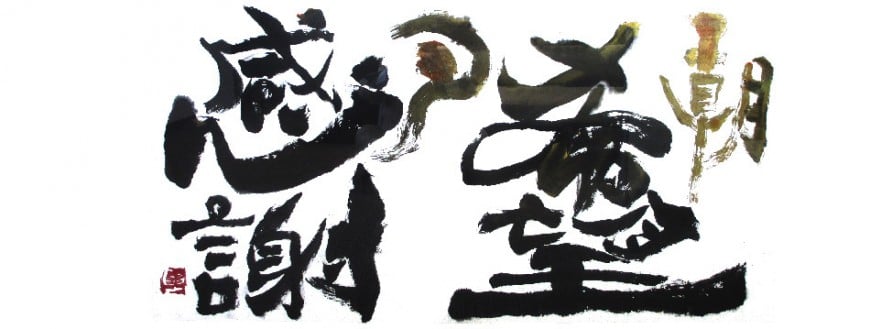 朝
希望
夕
感謝